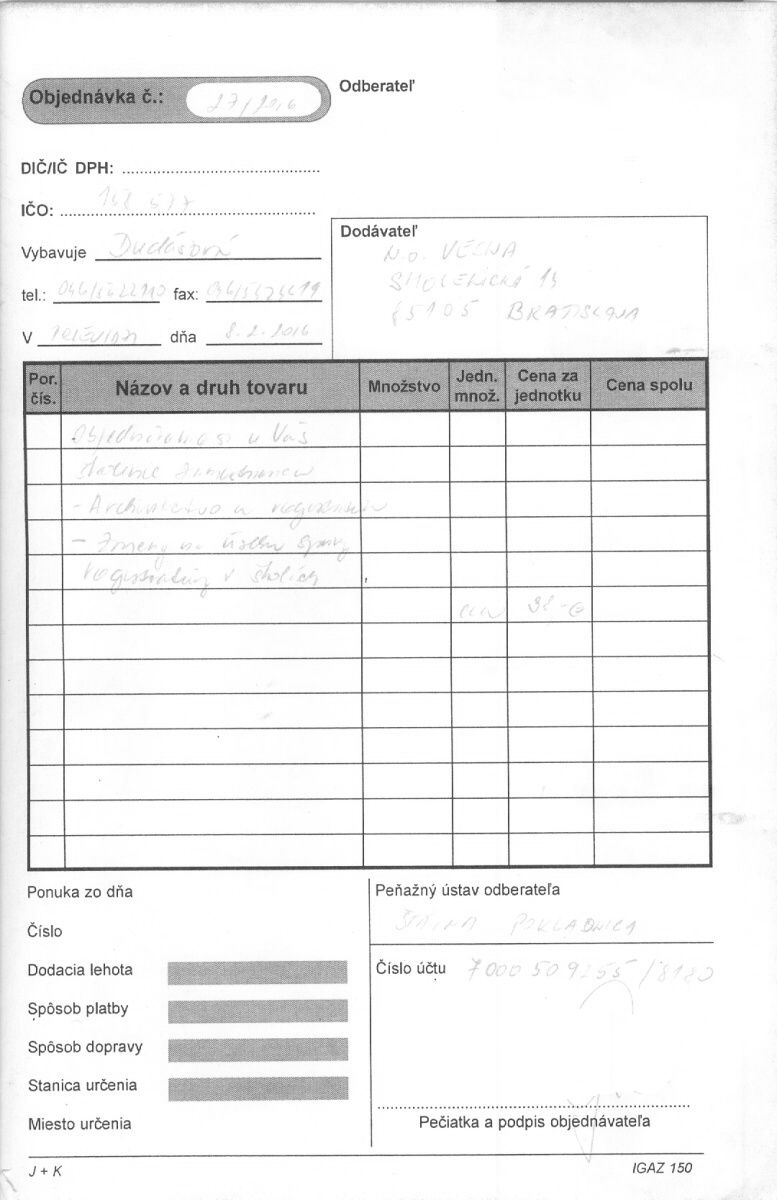 Objednávka č.: 27/2016
Odberateľ
DIČ/IČ DPH:
IČO: 158 577
Vybavuje Dudášová
Dodávateľ
N.o. VESNA
SMOLENICKÁ 14
85105 BRATISLAVA
tel.: fax:
V dňa 8.2.2016
Por. čís. Názov a druh tovaru Množstvo Jedn. množ. Cena za jednotku Cena spolu
Objednávame si u Vás
- Archívnictvo a
- Zmeny na úseku správy
registratúry v školách
38,-€
Ponuka zo dňa
Číslo
Dodacia lehota
Spôsob platby
Spôsob dopravy
Stanica určenia
Miesto určenia
Peňažný ústav odberateľa
ŠTÁTNA POKLADNICA
Číslo účtu 7000509255/8180
Pečiatka a podpis objednávateľa
J + K
IGAZ 150